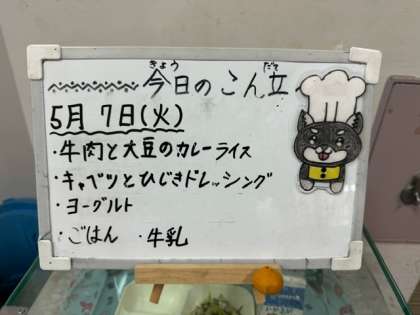 今日のこん立
きょう だて
5月 7日(火)
・牛肉と大豆のカレーライス
・キャベツとひじきドレッシング
・ヨーグルト
・ごはん ・牛乳